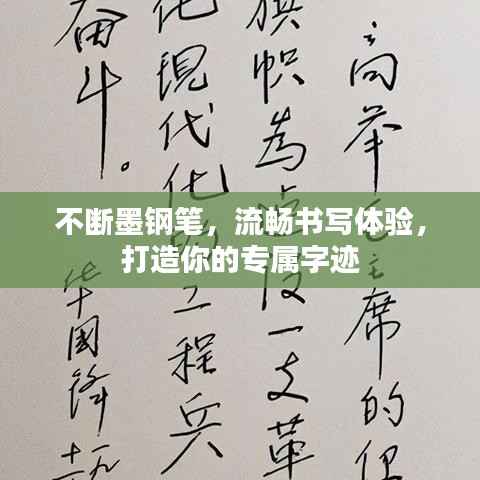 不断墨钢笔，流畅书写体验，
打造你的专属字迹
高举主席的
旗帜為设一支革
化現代化工程兵
奋斗。
华國锋